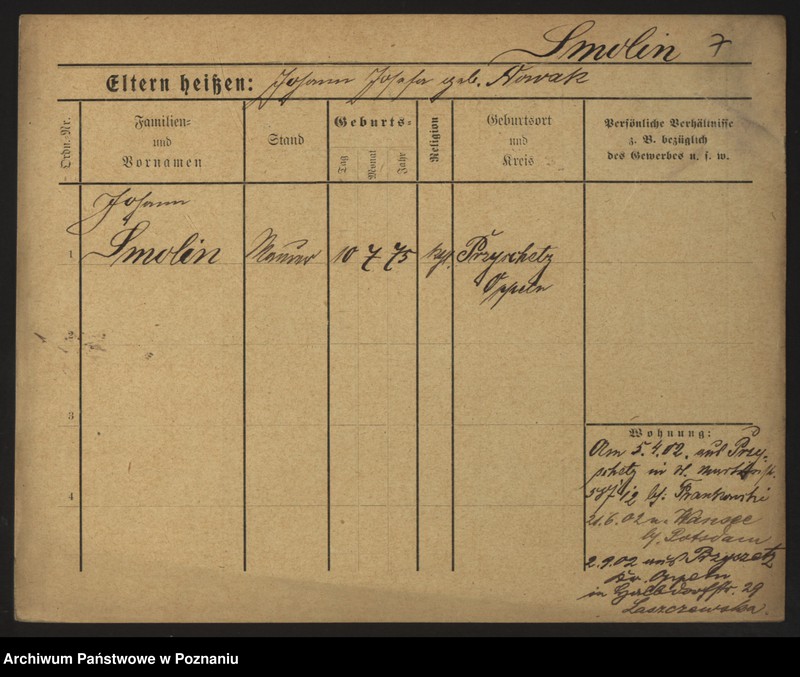 Smolin 7
Eltern heißen: Johann Josefa geb. Nowak
Ordn.-Nr.
Familien-
und
Vornamen
Stand
Geburts-
Tag
Monat
Jahr
Religion
Geburtsort
und
Kreis
Persönliche Verhältnisse
z. B. bezüglich
des Gewerbes u. s. w.
Johann
1 Smolin Maurer 10 7 75 kath. Przyschetz
Oppeln
2
3
4
Wohnung:
Am 5.4.02. aus Przy-
schetz in
bj. Frankowski
21.6.02 n. Wansee
bj. Potsdam
2.9.02 aus Pryszetz
Kr. Oppeln
in 29
Laszczewska.
Archiwum Państwowe w Poznaniu